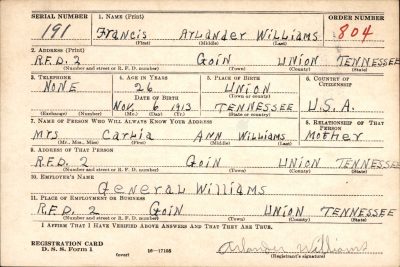 SERIAL NUMBER 1. NAME (Print) ORDER NUMBER
191 Francis Arlander Williams 804
(First) (Middle) (Last)
2. ADDRESS (Print)
R.F.D. 2 Goin Union Tennessee
(Number and street or R. F. D. number) (Town) (County) (State)
3. TELEPHONE 4. AGE IN YEARS 5. PLACE OF BIRTH 6. COUNTRY OF CITIZENSHIP
None 26 Union
DATE OF BIRTH (Town or county)
Nov. 6 1913 Tennessee U.S.A.
(Exchange) (Number) (Mo.) (Day) (Yr.) (State or country)
7. NAME OF PERSON WHO WILL ALWAYS KNOW YOUR ADDRESS 8. RELATIONSHIP OF THAT PERSON
Mrs Ann Williams Mother
(Mr., Mrs., Miss) (First) (Middle) (Last)
9. ADDRESS OF THAT PERSON
R.F.D. 2 Goin Union Tennessee
(Number and street or R. F. D. number) (Town) (County) (State)
10. EMPLOYER'S NAME
General Williams
11. PLACE OF EMPLOYMENT OR BUSINESS
R.F.D. 2 Goin Union Tennessee
(Number and street or R. F. D. number) (Town) (County) (State)
I AFFIRM THAT I HAVE VERIFIED ABOVE ANSWERS AND THAT THEY ARE TRUE.
REGISTRATION CARD
D. S. S. Form 1 (over) 16—17105 Arlander Williams
(Registrant's signature)